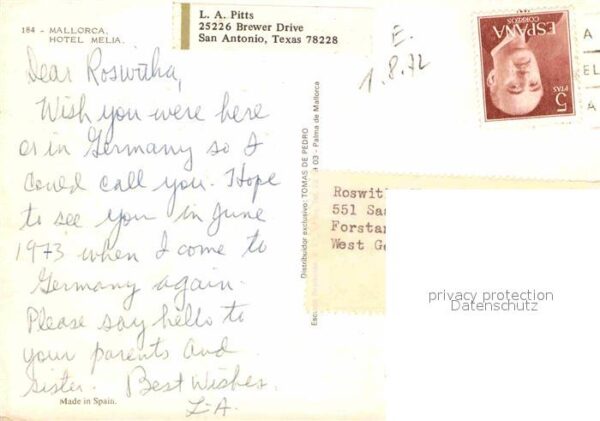 184 - MALLORCA.
HOTEL MELIA.
L. A. Pitts
25226 Brewer Drive
San Antonio, Texas 78228
E.
1.8.72
ESPAÑA
CORREOS
5
PTAS
A
EL
A
Dear Roswitha,
Wish you were here
or in Germany so I
could call you. Hope
to see you in June
1973 when I come to
Germany again.
Please say hello to
your parents and
sister. Best Wishes.
L-A.
Made in Spain.
Distribuidor exclusivo: TOMAS DE PEDRO
03 - Palma de Mallorca
Roswit
551 Saa
Forstan
West Ge
privacy protection
Datenschutz